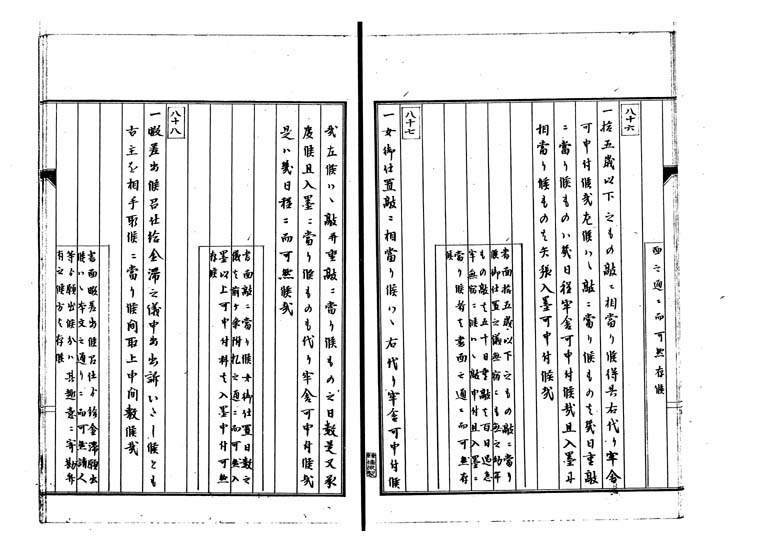 面之通ニ而可然存候
八十六
一拾五歳以下之もの敲ニ相當り候得共右代り牢舎
可申付候哉左候ハヽ敲ニ當り候ものハ幾日重敲
ニ當り候ものハ幾日程牢舎可申付候哉且入墨ニ
相當り候ものも矢張入墨可申付候哉
書面拾五歳以下之もの敲ニ當り
候御仕置之儀無宿ニも無之幼年
もの敲は五十日重敲は百日過怠
牢無宿ニ候ハヽ敲申付且入墨ニ
當り候者は書面之通ニ而可然存
候
八十七
一女御仕置敲ニ相當り候ハヽ右代り牢舎可申付候
哉左候ハヽ敲并重敲ニ當り候もの之日數是又承
度候且入墨ニ當り候ものも代り牢舎可申付候哉
是ハ幾日程ニ而可然候哉
書面敲ニ當り候女御仕置日數之
儀は前ヶ条附札之通ニ而可然入
墨以上可申付科は入墨申付可然
存候
八十八
一暇差出候召仕給金滞之儀申出出訴いたし候とも
古主を相手取候ニ當り候間取上申間敷候哉
書面暇差出候召仕より給金滞願出
候ハヽ本文之通りニ而可然請人
等より願出候分ハ其趣意ニ寄勘弁
有之候方と存候